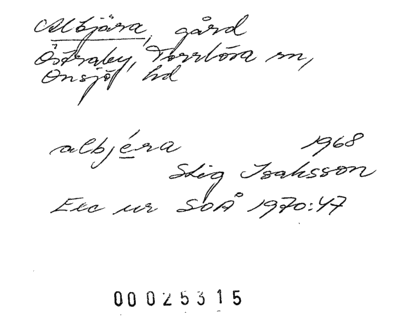 Albjära, gård
Östraby, Torrlösa sn,
Onsjö hd
albjéra 1968
Stig Isaksson
Exc ur SOÅ 1970:47
00025315